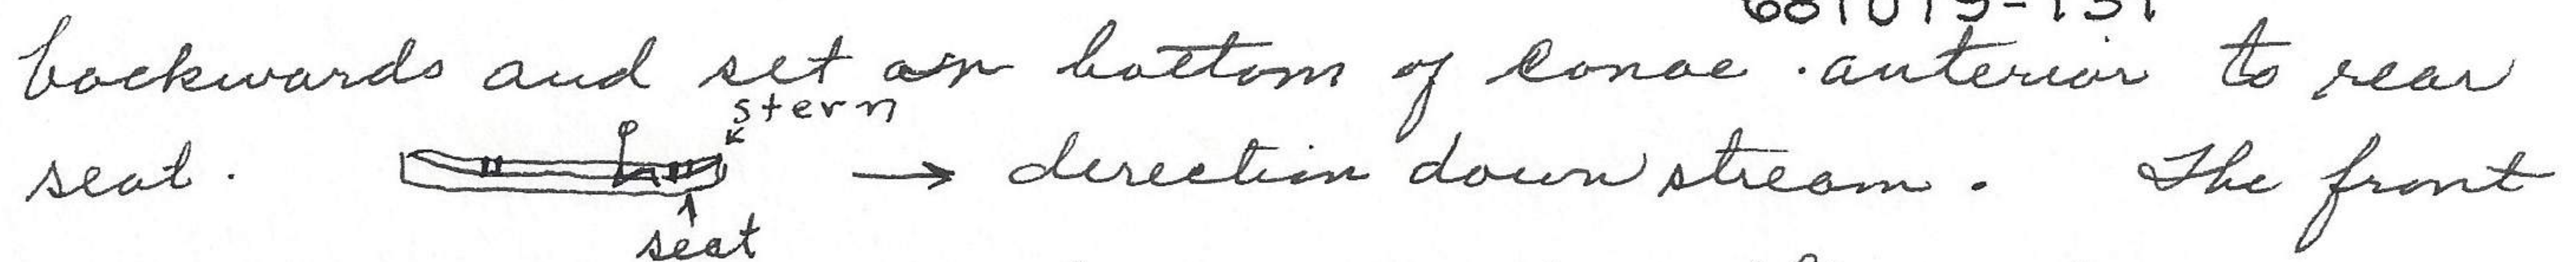 backwards and set on bottom of canoe anterior to rear
stern
seat. → direction down stream. The front
seat